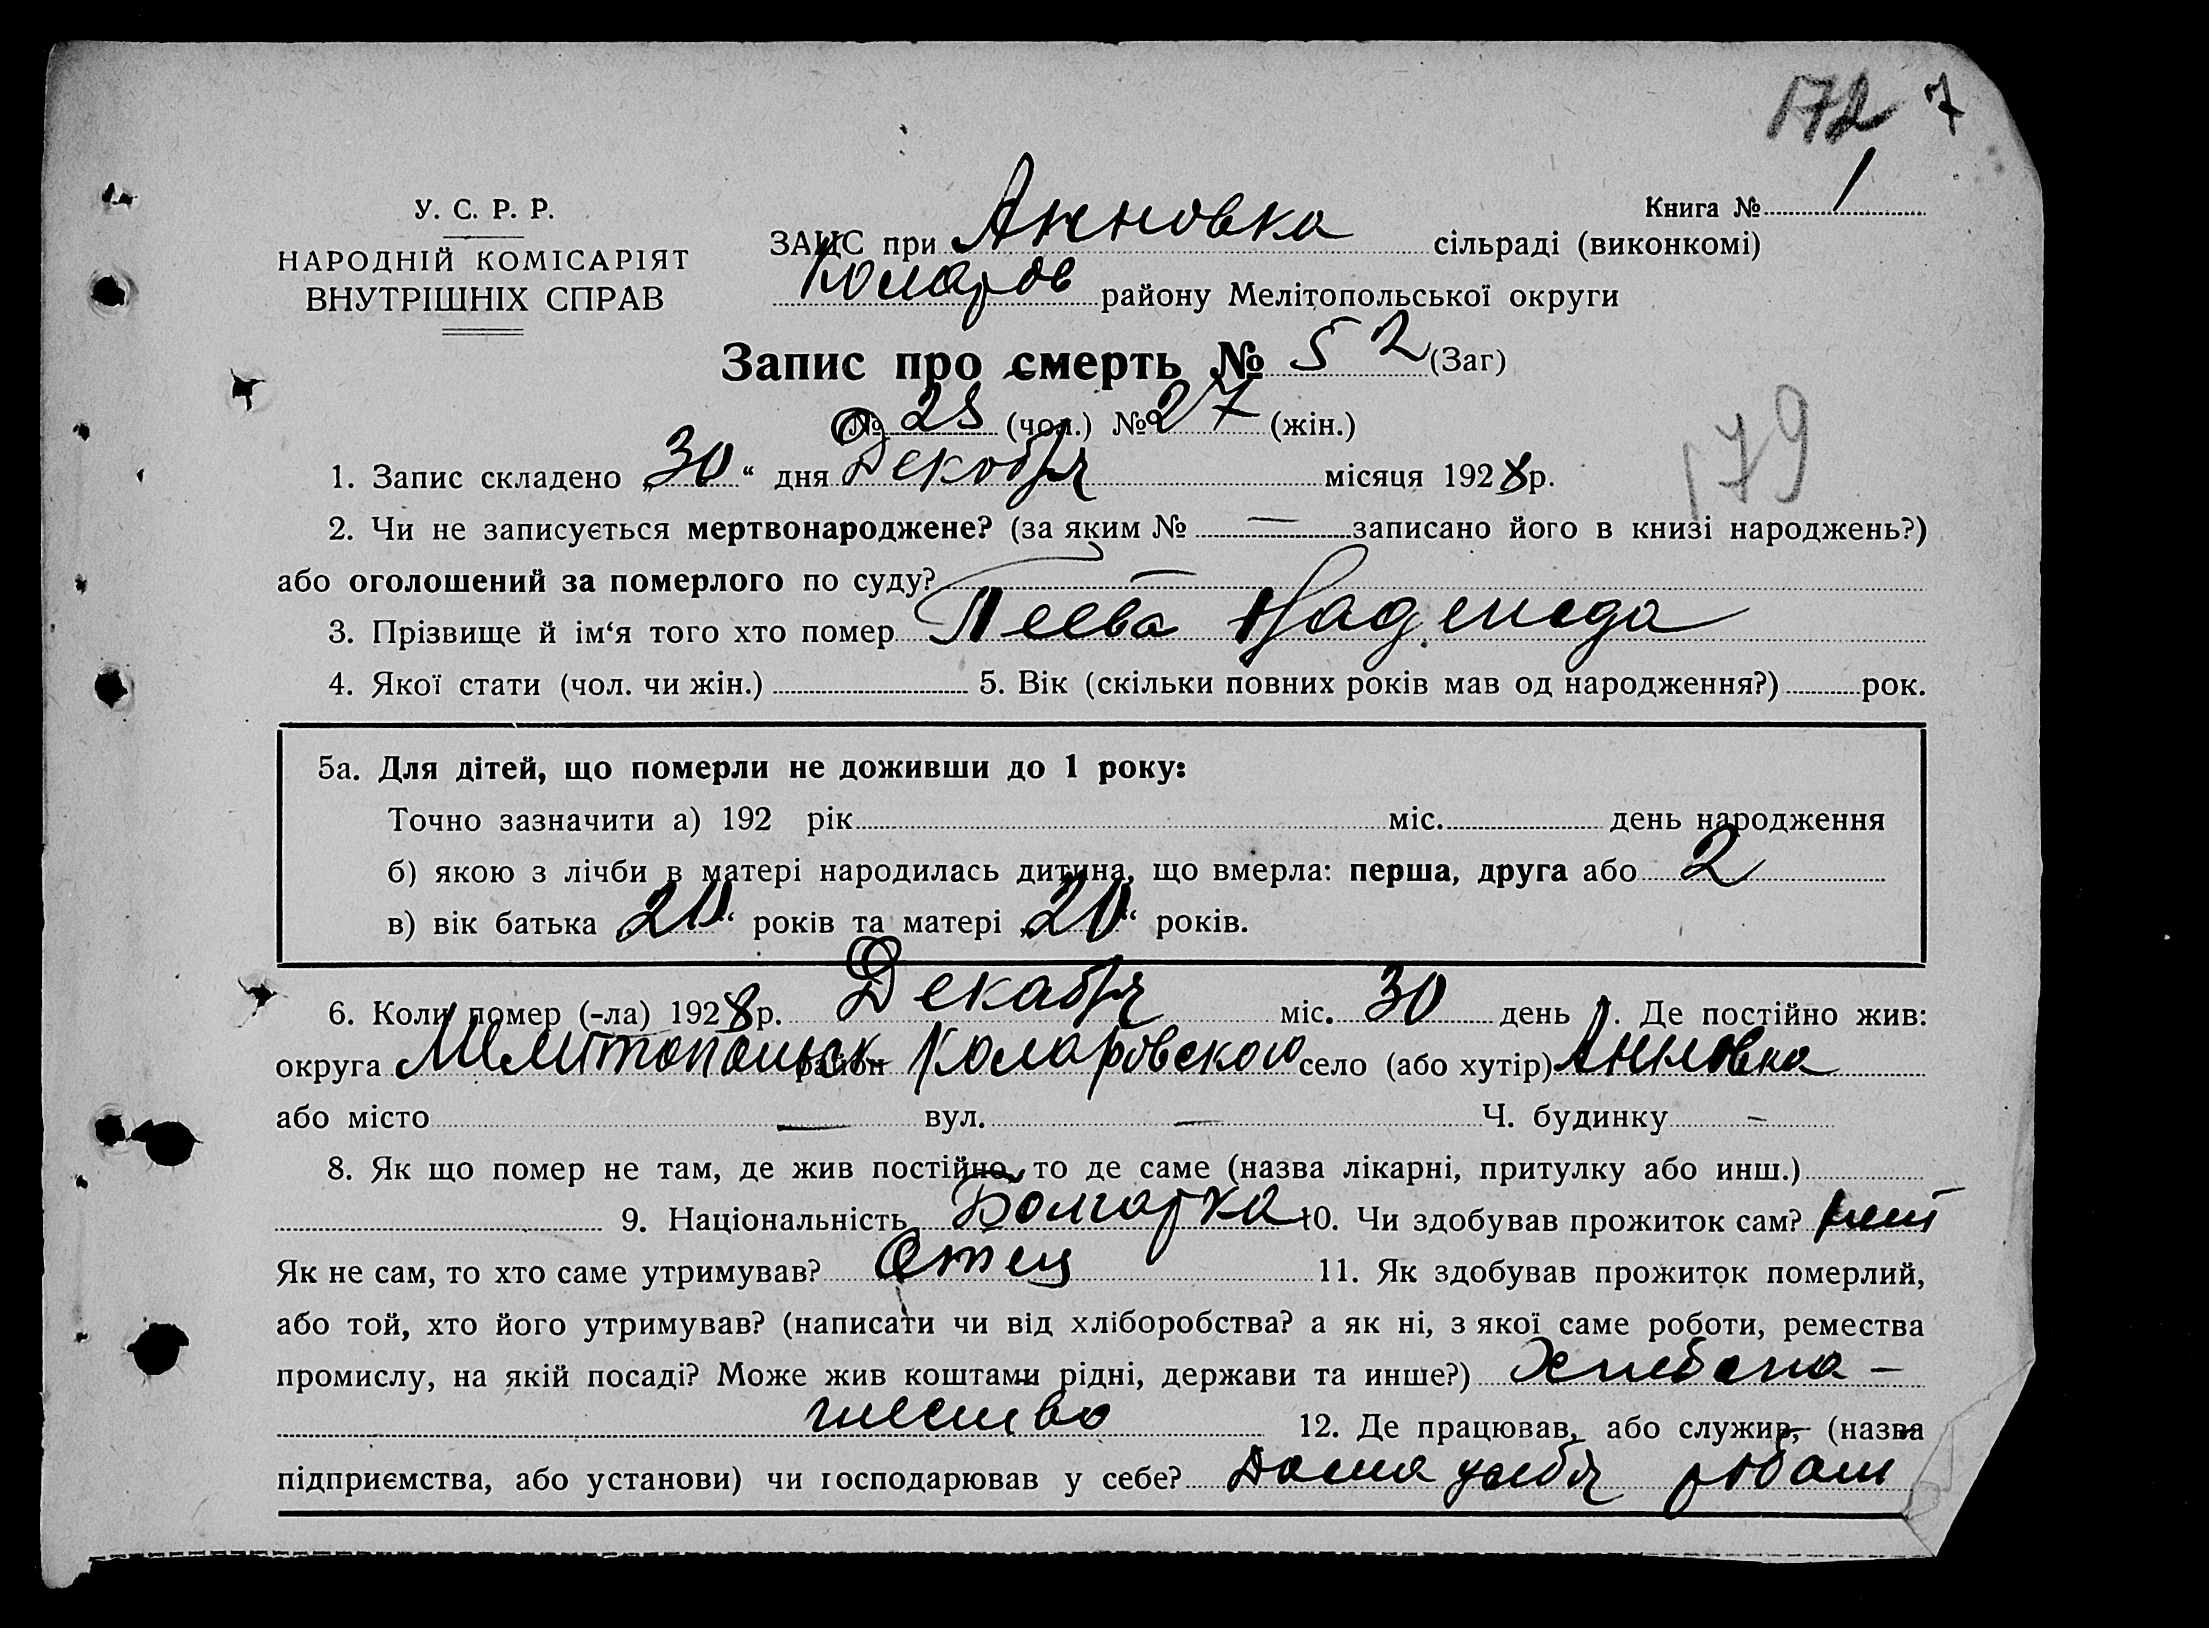 172 7
У. С. Р. Р.
Книга № 1
ЗАЦС при Анновка сільраді (виконкомі)
НАРОДНІЙ КОМІСАРІЯТ
ВНУТРІШНІХ СПРАВ
Коларов району Мелітопольської округи
Запис про смерть № 52 (Заг)
№ 25 (чол.) № 27 (жін.)
179
1. Запис складено „30“ дня Декабря місяця 1928 р.
2. Чи не записується мертвонароджене? (за яким № — записано його в книзі народжень?)
або оголошений за померлого по суду? —
3. Прізвище й ім‘я того хто помер Пеева Надежда
4. Якої стати (чол. чи жін.) 5. Вік (скільки повних років мав од народження?) рок.
5а. Для дітей, що померли не доживши до 1 року:
Точно зазначити а) 192 рік міс. день народження
б) якою з лічби в матері народилась дитина, що вмерла: перша, друга або 2
в) вік батька „20“ років та матері „20“ років.
6. Коли помер (-ла) 1928 р. Декабря міс. 30 день . Де постійно жив:
округа Мелитопольск район Коларовского село (або хутір) Анновка
або місто — вул. — Ч. будинку —
8. Як що помер не там, де жив постійно, то де саме (назва лікарні, притулку або инш.)
9. Національність Болгарка 10. Чи здобував прожиток сам? нет
Як не сам, то хто саме утримував? Отец 11. Як здобував прожиток померлий,
або той, хто його утримував? (написати чи від хліборобства? а як ні, з якої саме роботи, ремества
промислу, на якій посаді? Може жив коштами рідні, держави та инше?) Хлебопа-
шество 12. Де працював, або служив, (назва
підприємства, або установи) чи господарював у себе? Дома у себя